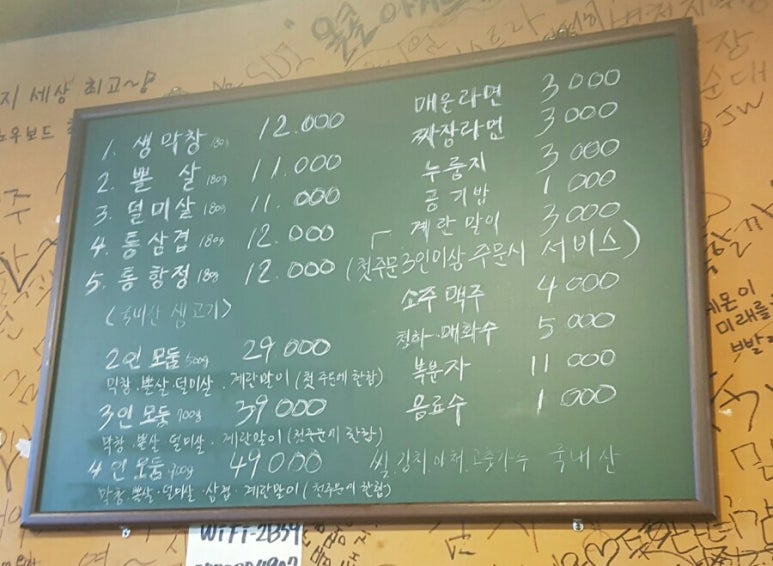 1. 생막창 180g 12.000
2. 뽈 살 180g 11.000
3. 덜미살 180g 11.000
4. 통삼겹 180g 12.000
5. 통항정 180g 12.000
(국내산 생고기)
2인 모둠 500g 29.000
막창.뽈살.덜미살.계란말이(첫주문에 한함)
3인 모둠 700g 39000
막창.뽈살.덜미살.계란말이(첫주문에 한함)
4인 모둠 900g 49000
막창.뽈살.덜미살.삼겹.계란말이(첫주문에 한함)
매운라면 3000
짜장라면 3000
누룽지 3000
공기밥 1000
계란말이 3000
(첫주문3인이상 주문시 서비스)
소주 맥주 4000
청하.매화수 5000
복분자 11000
음료수 1000
쌀,김치,야채,고춧가루 국내산
지 세상 최고~!
노우보드
순대
JW
미래를
WiFi-2B59